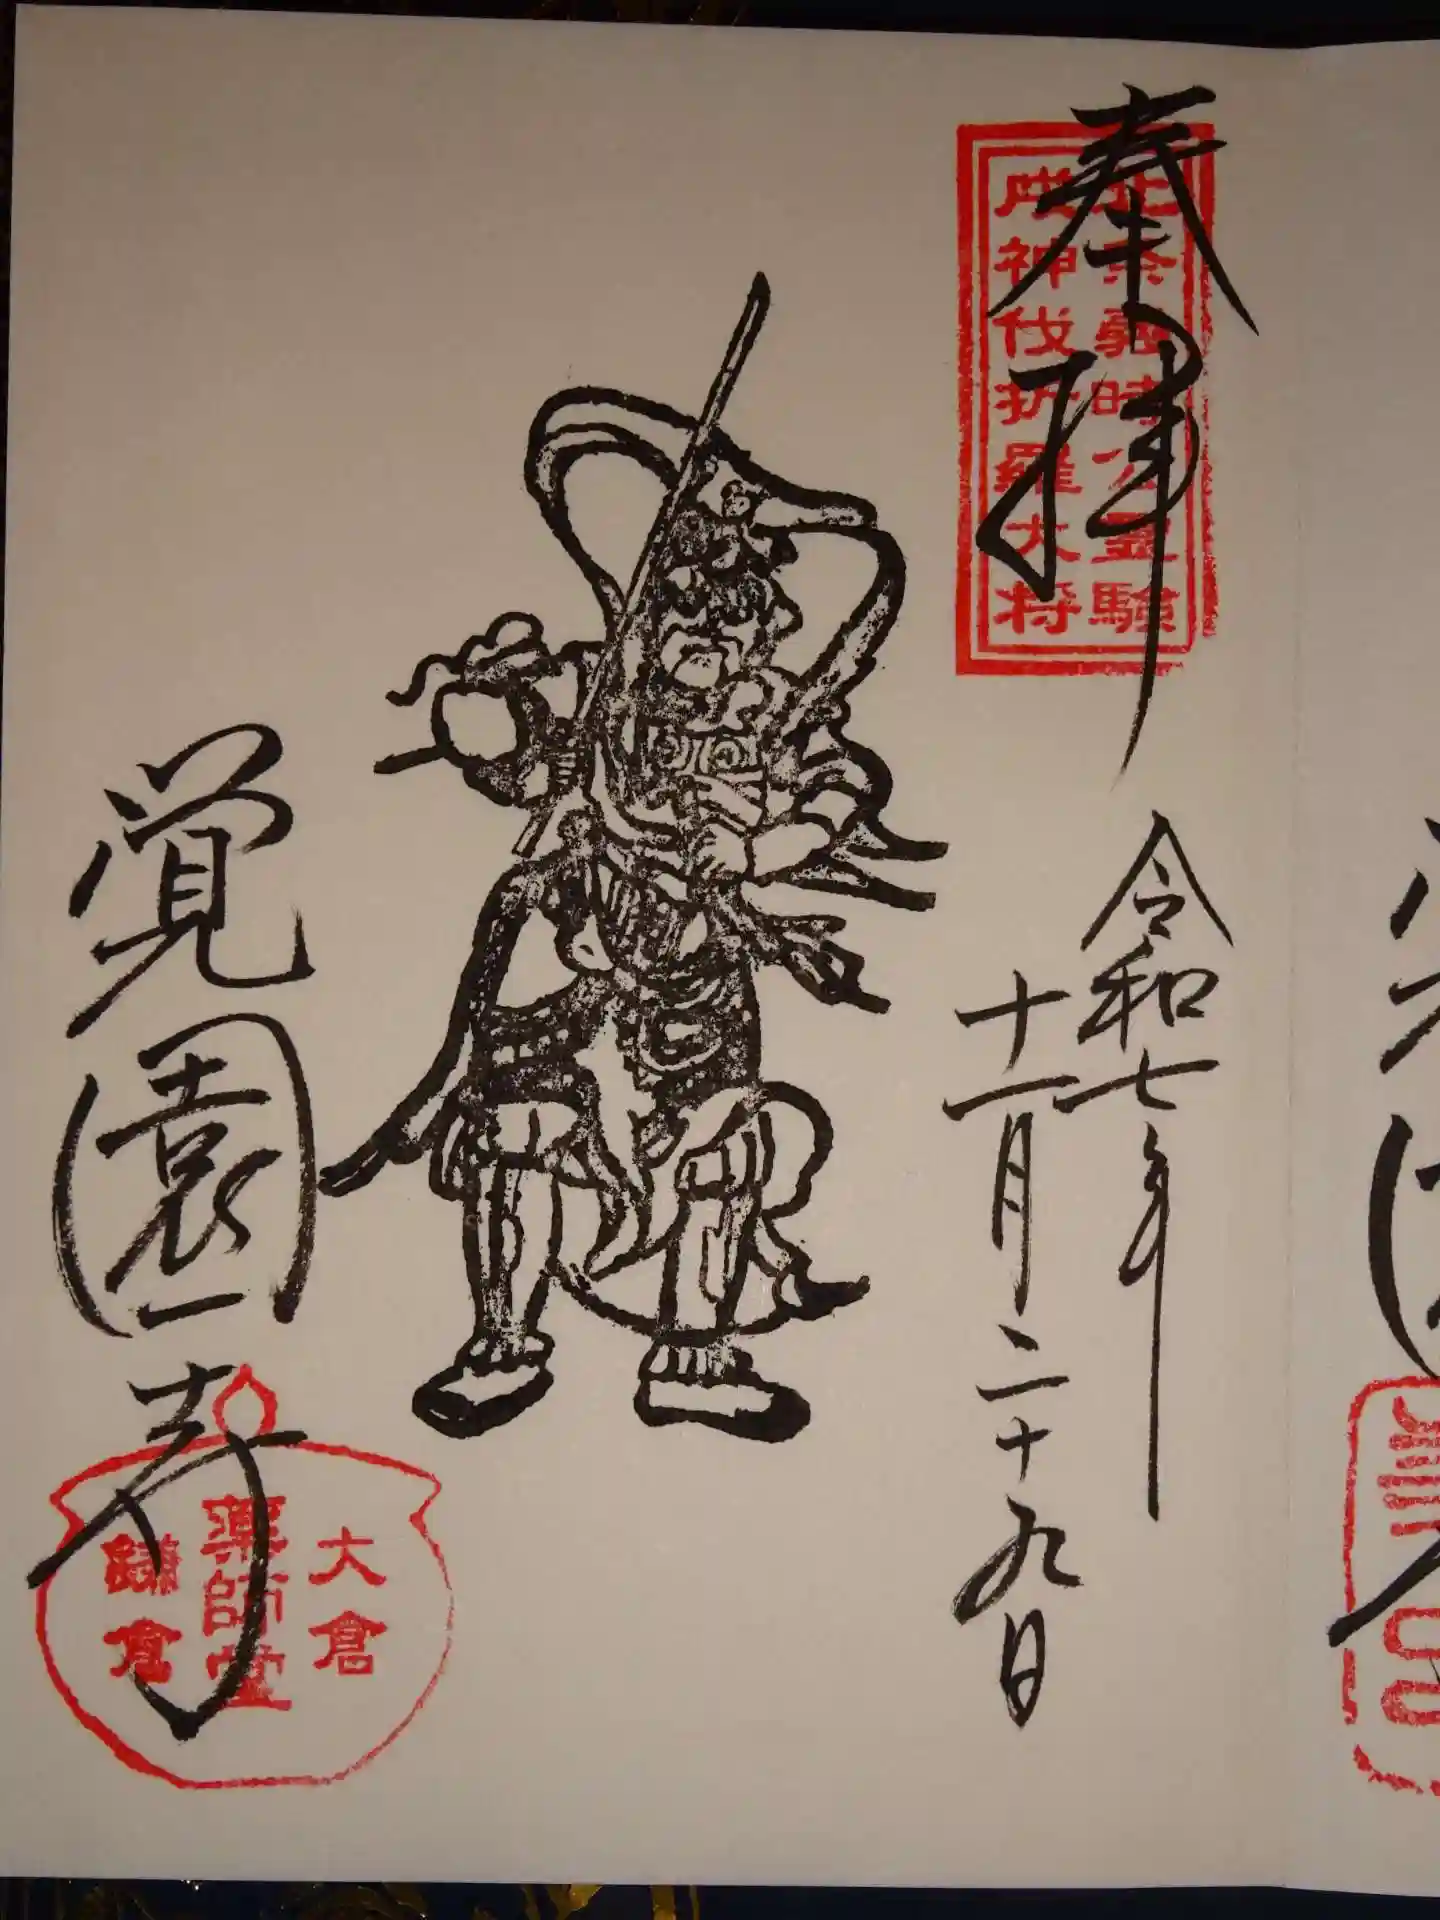 奉拝
北条義時公霊験
戌神伐折羅大将
令和七年
十一月二十九日
覚園寺
大倉
薬師堂
鎌倉